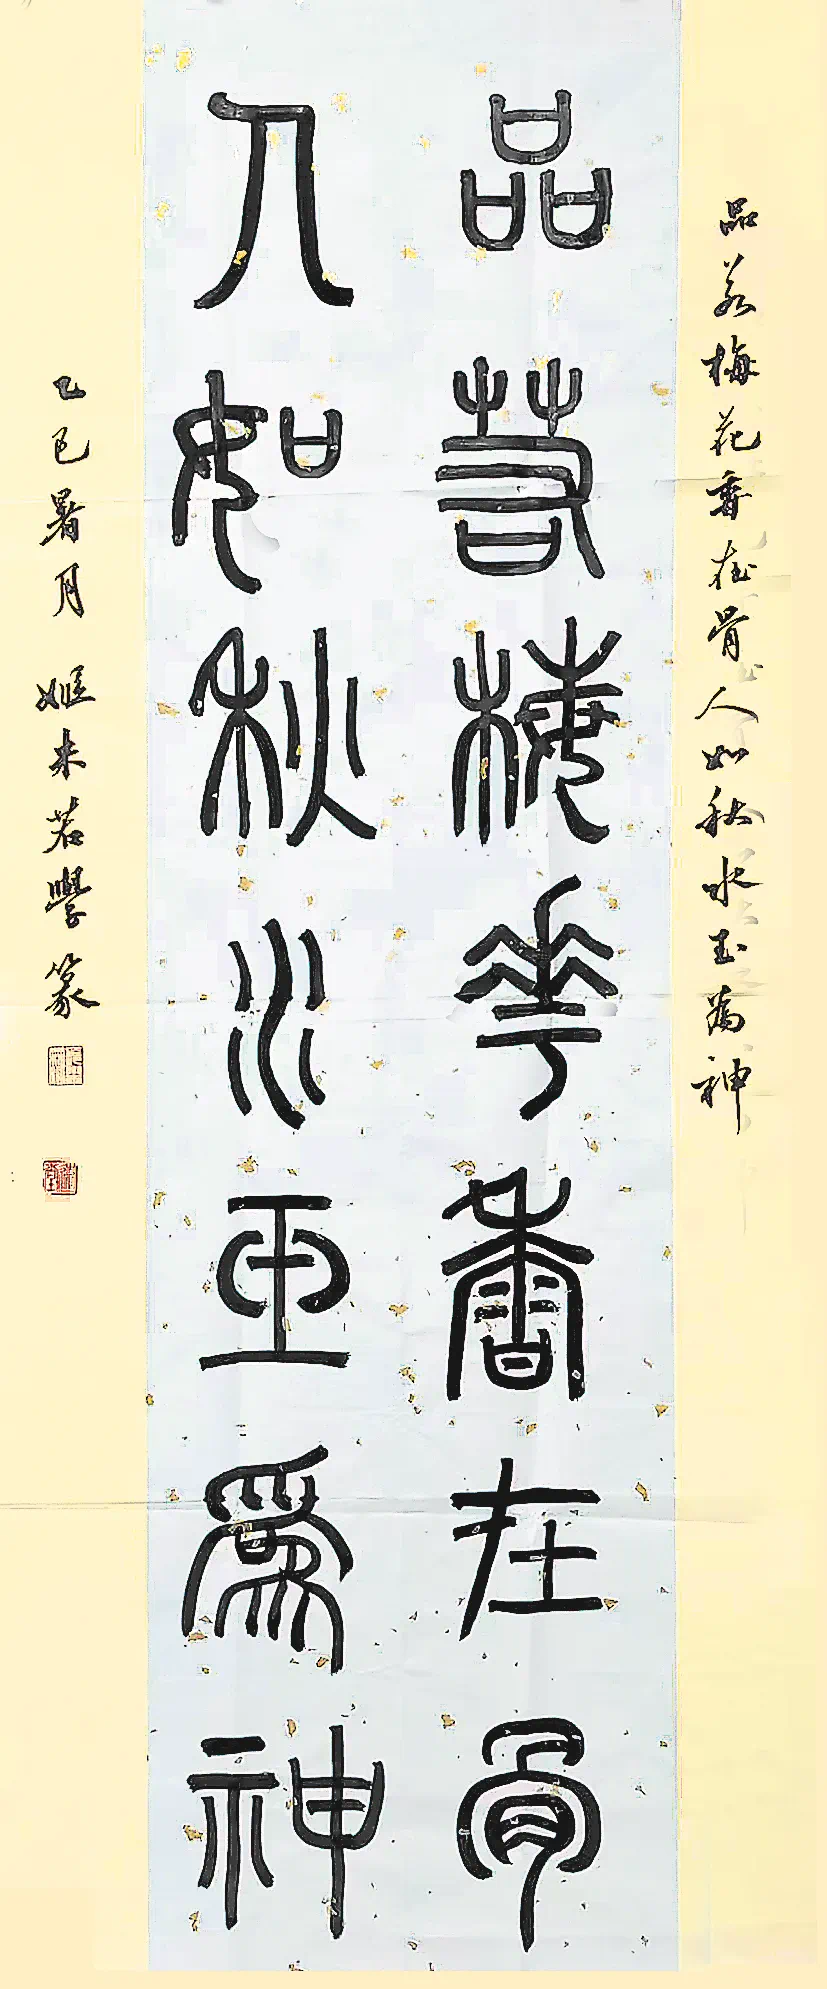 品若梅花香在骨人如秋水玉为神
品若梅華香在骨
人如秋水玉爲神
乙巳暑月姬未若學篆